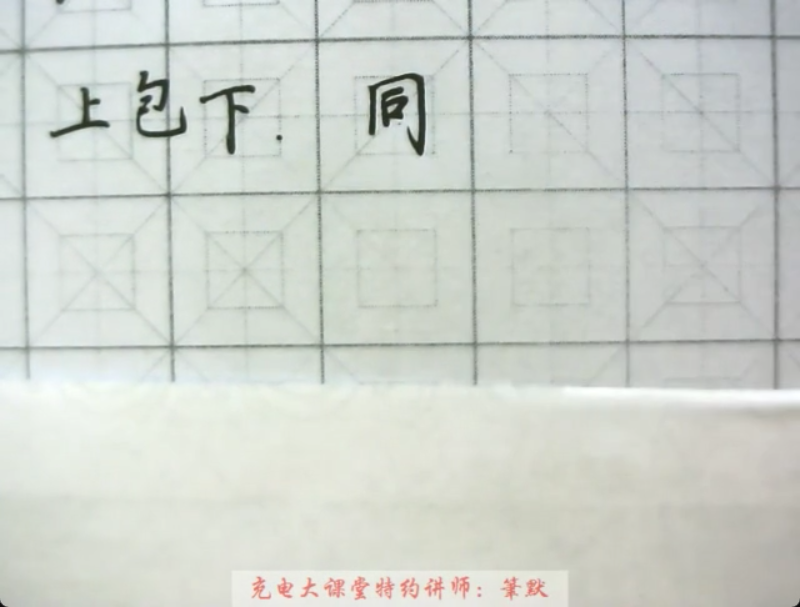 上包下. 同
充电大课堂特约讲师：筆默